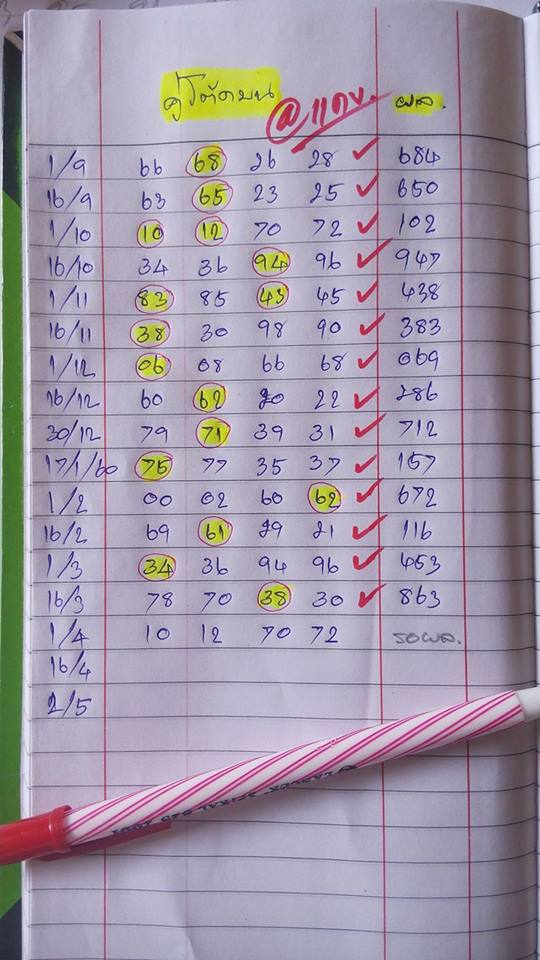 คู่โต๊ดบน @แดง. ผล.
1/9 66 68 26 28 ✓ 684
16/9 63 65 23 25 ✓ 650
1/10 10 12 70 72 ✓ 102
16/10 34 36 94 96 ✓ 947
1/11 83 85 43 45 ✓ 438
16/11 38 30 98 90 ✓ 383
1/12 06 08 66 68 ✓ 069
16/12 60 62 20 22 ✓ 286
30/12 79 71 39 31 ✓ 712
17/1/60 75 77 35 37 ✓ 157
1/2 00 02 60 62 ✓ 672
16/2 69 61 29 21 ✓ 116
1/3 34 36 94 96 ✓ 453
16/3 78 70 38 30 ✓ 863
1/4 10 12 70 72 รอผล.
16/4
2/5